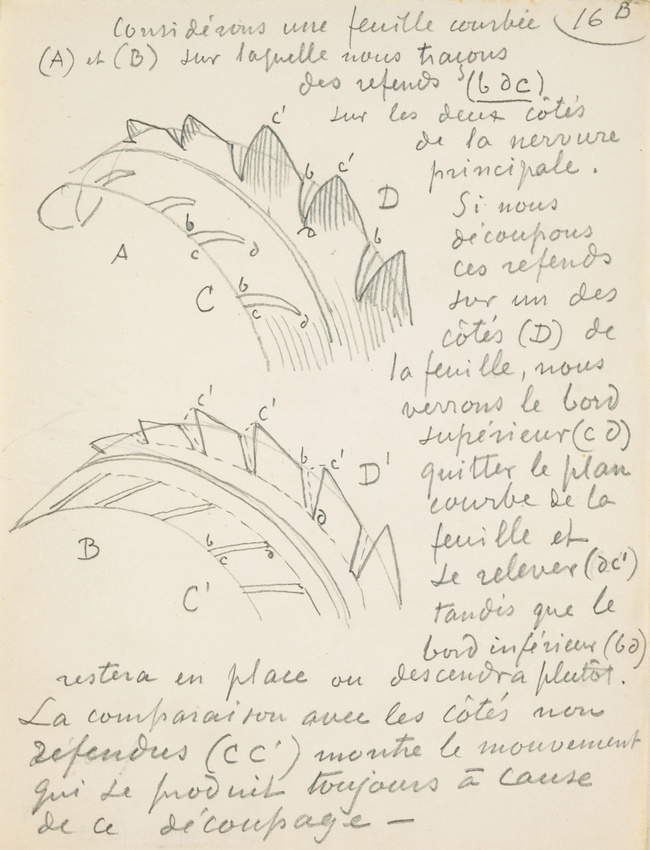 16 B
Considérons une feuille courbée
(A) et (B) sur laquelle nous traçons
des refends (b d c)
sur les deux côtés
de la nervure
principale.
Si nous
découpons
ces refends
sur un des
côtés (D) de
la feuille, nous
verrons le bord
supérieur (c d)
quitter le plan
courbe de la
feuille et
se relever (dc')
tandis que le
bord inférieur (bd)
restera en place ou descendra plutôt.
La comparaison avec les côtés non
refendus (C C') montre le mouvement
qui se produit toujours à cause
de ce découpage —
c'
b c'
D
d
b
b
c d
A
C
b
c d
c'
c'
b c'
D'
d
B
b
c d
C'